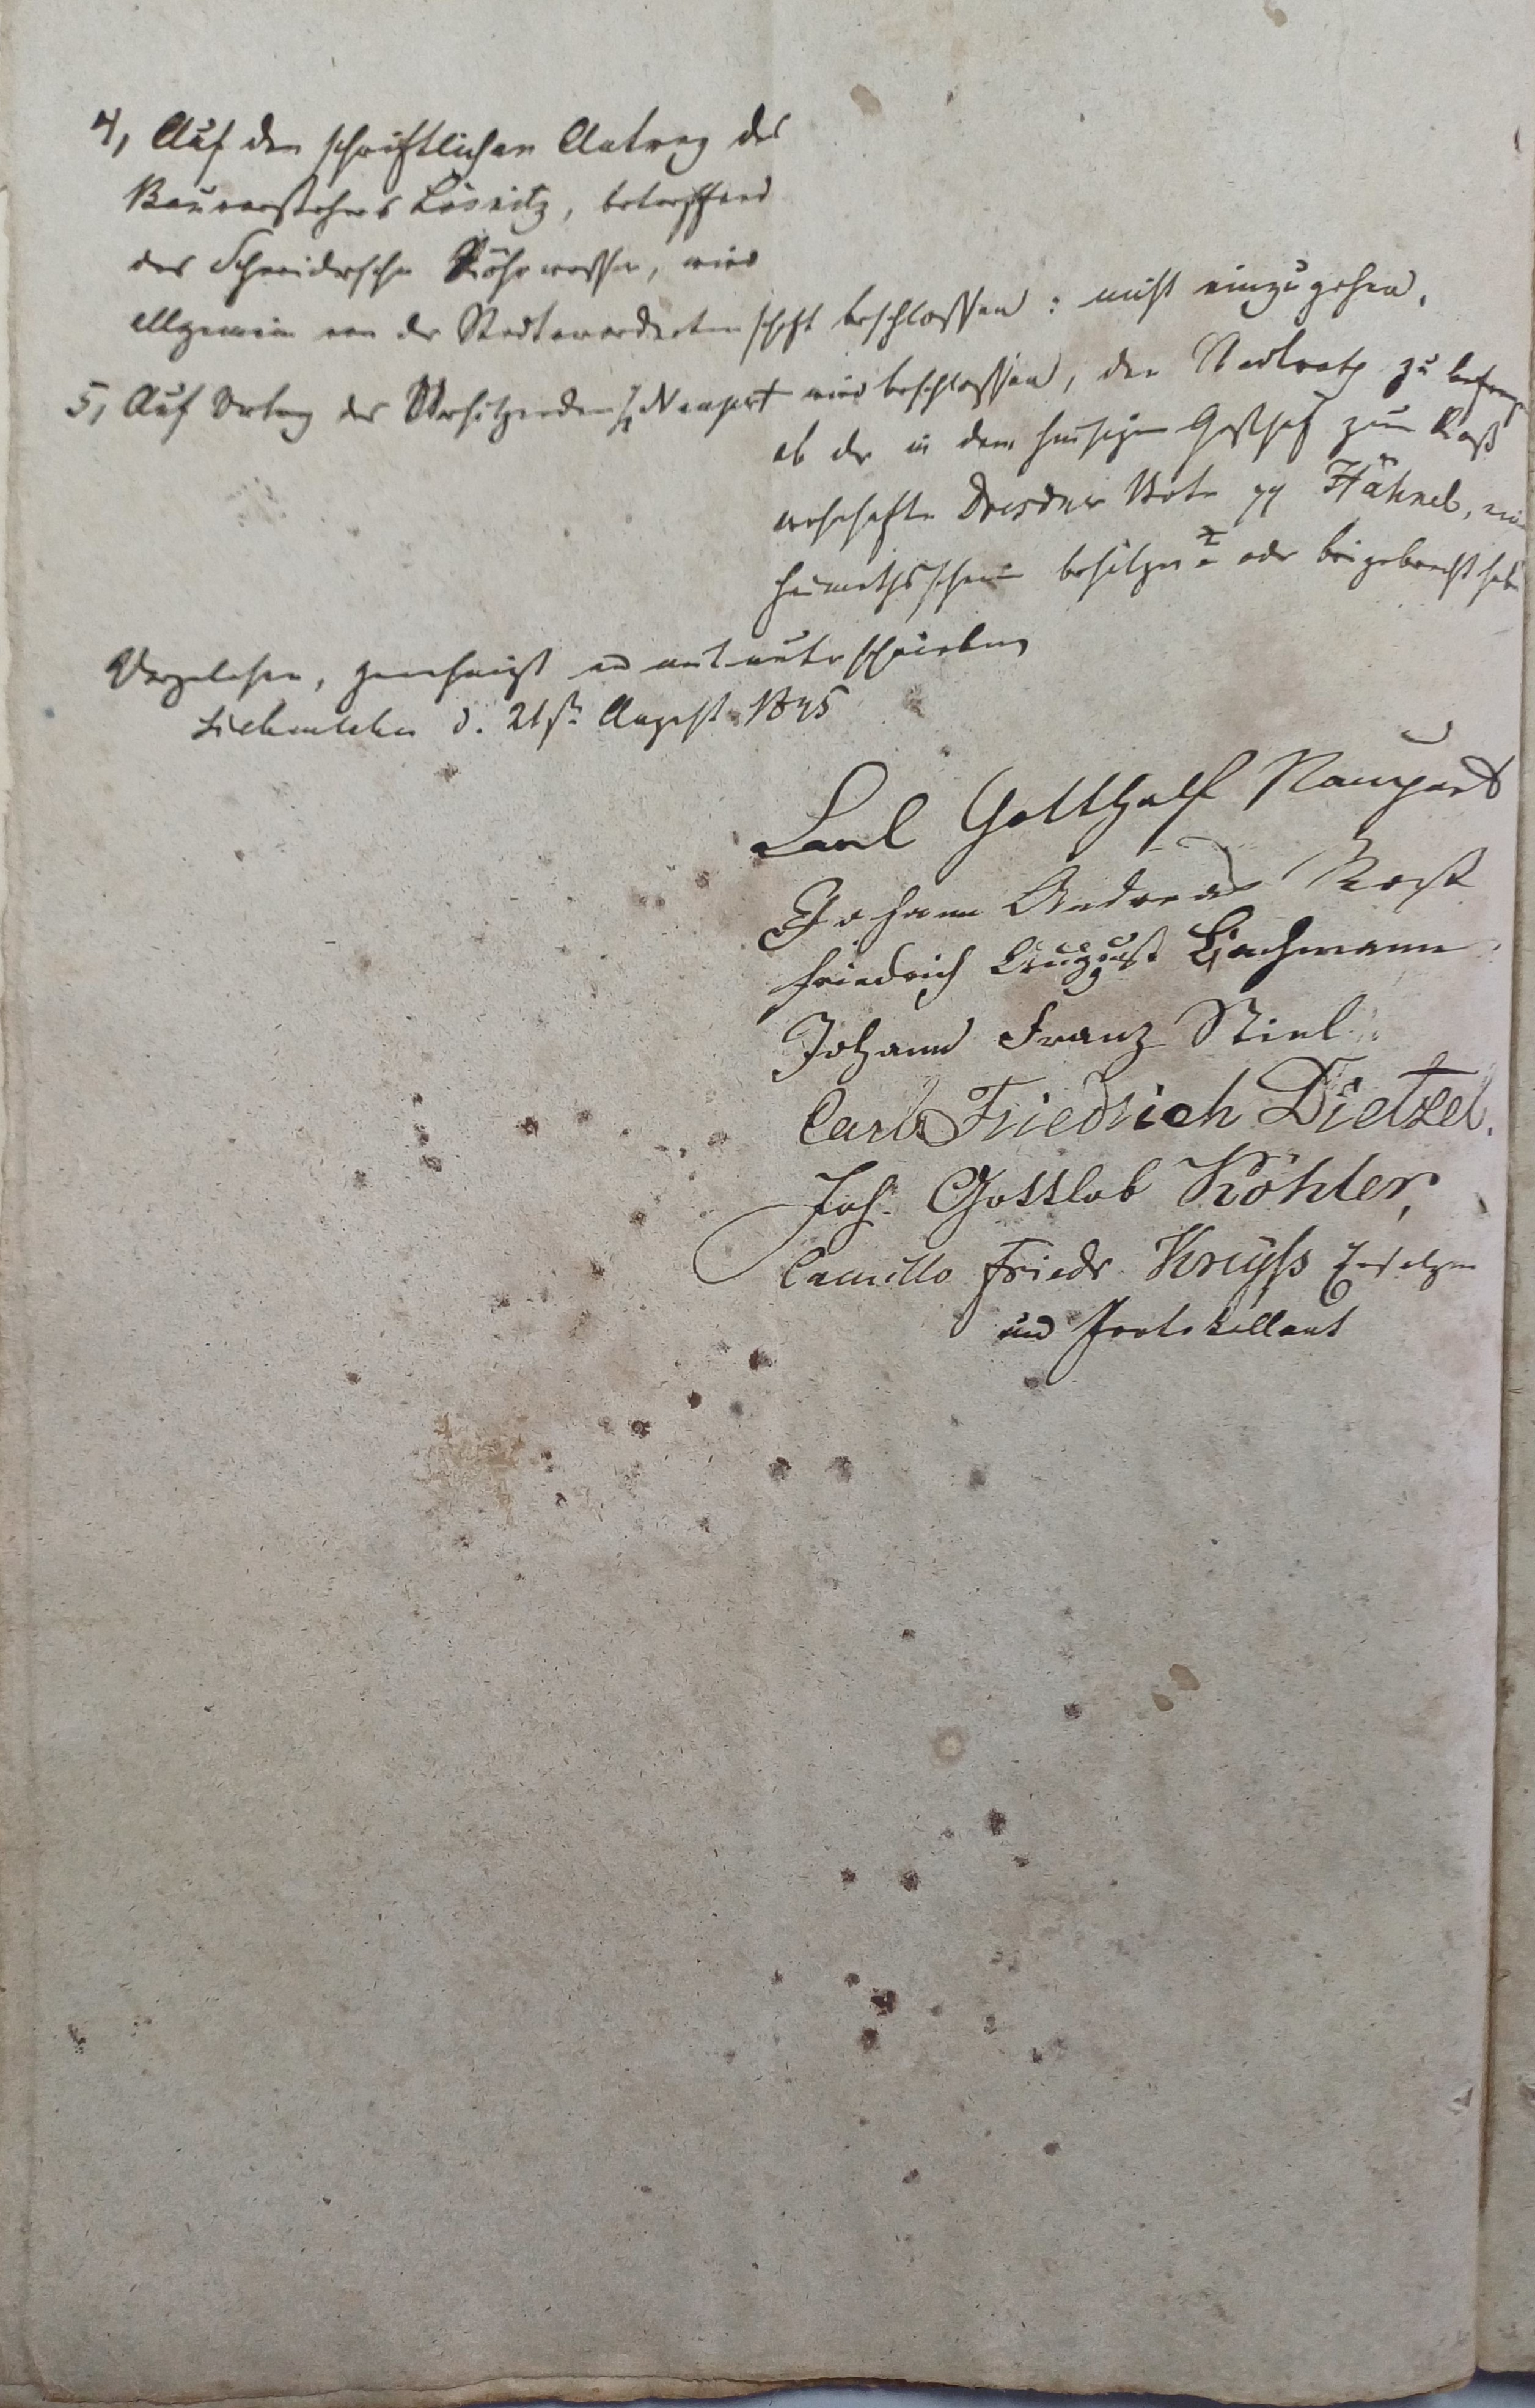 4, Auf den schriftlichen Antrag des
Bauvorstehers Lösnitz, betreffend
das Schneidersche Röhrwasser, wird
allgemein von der Stadtverordnetenschaft beschlossen: nicht einzugehen.
5, Auf Antrag des Vorsitzenden H. Naupert wird beschlossen, den Stadtrath zu befragen
ob der in dem hiesigen Gasthof zum Roß
wohnhafte Dresdner Bote Hähnel, ein
Heimathsschein besitze oder beigebracht habe
Vorgelesen, genehmigt und mit unterschrieben
Siebenlehn d. 21st August 1845
Carl Gotthelf Naupert
Johann Andreas Rost
Friedrich August Bachmann
Johann Franz Stirl
Carl Friedrich Dietzel.
Joh. Gottlob Köhler,
Camillo Friedr Kreyß
und Protokollant